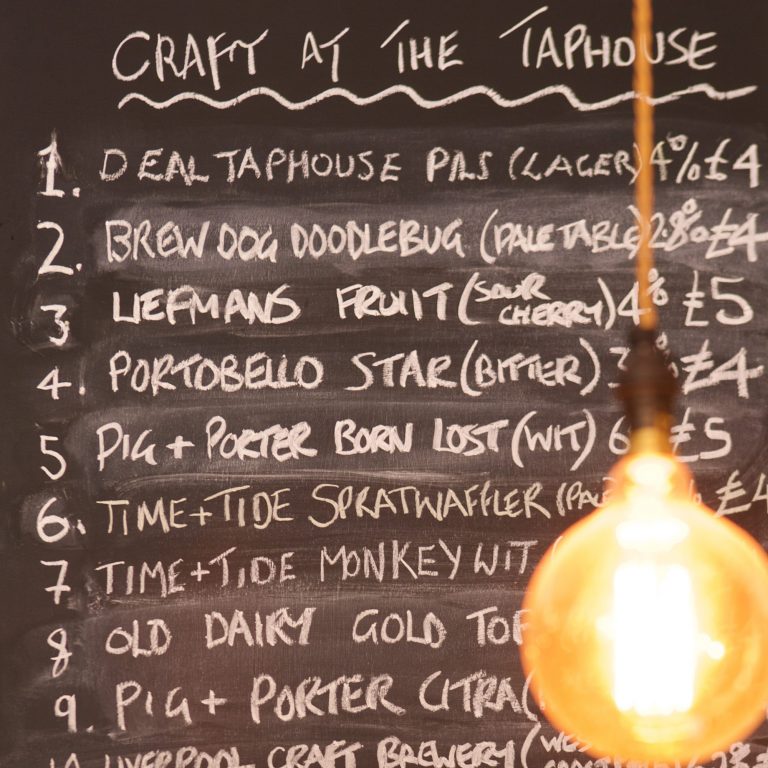 CRAFT AT THE TAPHOUSE
1. DEAL TAPHOUSE PILS (LAGER) 4% £4
2. BREW DOG DOODLEBUG (PALE TABLE) 2.8% £4
3 LIEFMANS FRUIT (SOUR CHERRY) 4% £5
4. PORTOBELLO STAR (BITTER) £4
5 PIG + PORTER BORN LOST (WIT) 6 £5
6. TIME + TIDE SPRATWAFFLER (PALE % £4
7 TIME + TIDE MONKEY WIT (
8 OLD DAIRY GOLD TOP
9. PIG + PORTER CITRA (
10 LIVERPOOL CRAFT BREWERY (